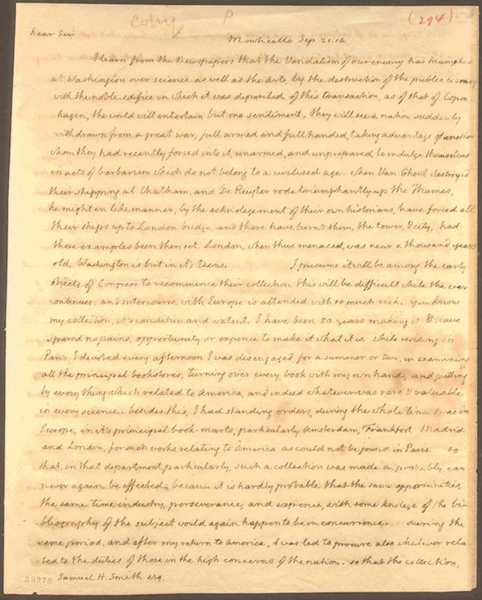 copy P (274)
Dear Sir Monticello Sep. 21. 14
I learn from the Newspapers that the Vandalism of our enemy has triumphed
at Washington over science as well as the Arts, by the destruction of the public library
with the noble edifice in which it was deposited. of this transaction, as of that of Copen
hagen, the world will entertain but one sentiment. they will see a nation suddenly
withdrawn from a great war, full armed and full handed, taking advantage of another
whom they had recently forced into it, unarmed, and unprepared, to indulge themselves
in acts of barbarism which do not belong to a civilised age. when Van Ghent destroyed
their shipping at Chatham, and De Ruyter rode triumphantly up the Thames,
he might in like manner, by the acknolegement of their own historians, have forced all
their ships up to London bridge, and there have burnt them, the tower, & city, had
these examples been then set. London, when thus menaced, was near a thousand years
old, Washington is but in it's teens. I presume it will be among the early
objects of Congress to recommence their collection. this will be difficult while the war
continues, and intercourse with Europe is attended with so much risk. you know
my collection, it's condition and extent. I have been 50. years making it, & have
spared no pains, opportunity or expence to make it what it is. while residing in
Paris I devoted every afternoon I was disengaged, for a summer or two, in examining
all the principal bookstores, turning over every book with my own hand, and putting
by every thing which related to America, and indeed whatever was rare & valuable
in every science. besides this, I had standing orders, during the whole time I was in
Europe, in it's principal book-marts, particularly Amsterdam, Frankfort, Madrid
and London, for such works relating to America as could not be found in Paris. so
that, in that department, particularly, such a collection was made as probably can
never again be effected; because it is hardly probable that the same opportunities,
the same time, industry, perseverance, and expence, with some knolege of the bib
liography of the subject would again happen to be in concurrence. during the
same period, and after my return to America, I was led to procure also whatever rela
ted to the duties of those in the high concerns of the nation. so that the collection,
Samuel H. Smith esq.